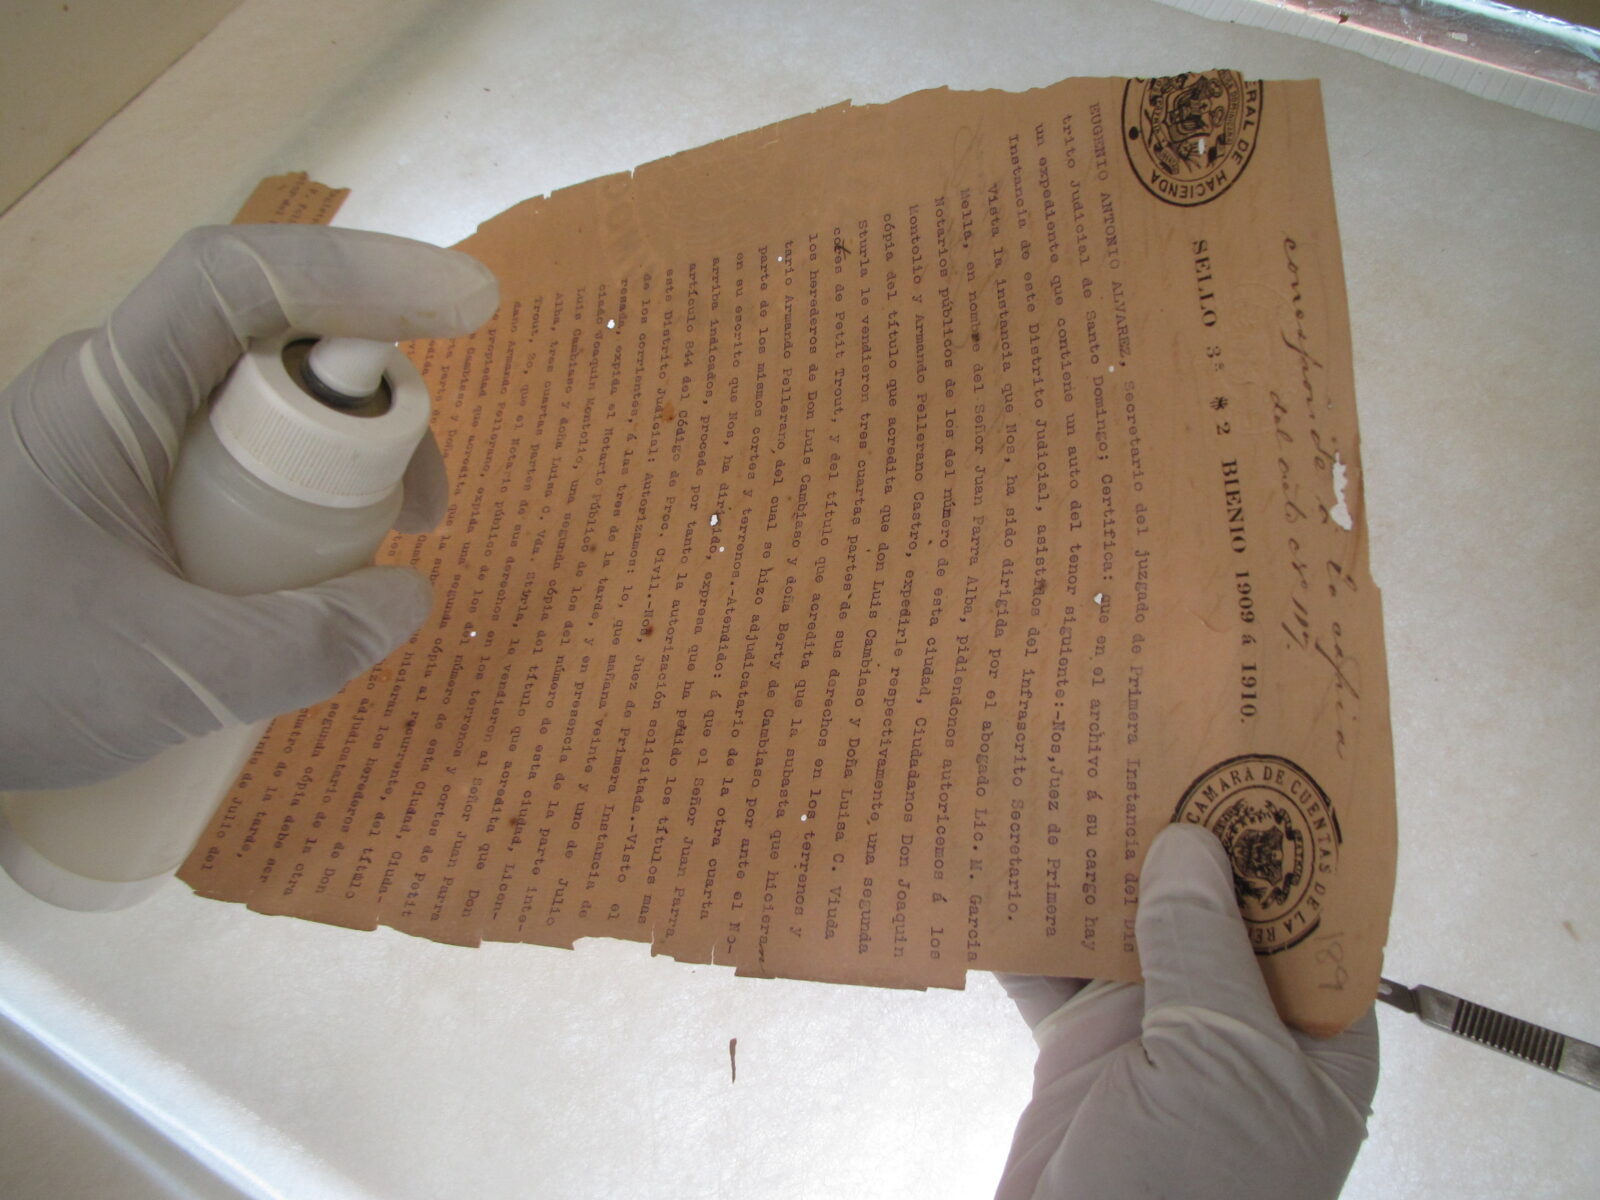 corresponde a la copia
del auto cso 117.
189
ERAL DE HACIENDA
SELLO 3º * 2 BIENIO 1909 á 1910.
CAMARA DE CUENTAS DE LA RE
EUGENIO ANTONIO ALVAREZ, Secretario del juzgado de Primera Instancia del Dis
trito Judicial de Santo Domingo; Certifica: que en el archivo á su cargo hay
un expediente que contiene un auto del tenor siguiente:-Nos,Juez de Primera
Instancia de este Distrito Judicial, asistidos del infrascrito Secretario.
Vista la instancia que Nos, ha sido dirigida por el abogado Lic. M. Garcia
Mella, en nombre del Señor Juan Parra Alba, pidiendonos autoricemos á los
Notarios públicos de los del número de esta ciudad, Ciudadanos Don Joaquin
Montolio y Armando Pellerano Castro, expedirle respectivamente, una segunda
cópia del título que acredita que don Luis Cambiaso y Doña Luisa C. Viuda
Sturla le vendieron tres cuartas partes de sus derechos en los terrenos y
cortes de Petit Trout, y del título que acredita que la subasta que hicieran
los herederos de Don Luis Cambiaso y doña Berty de Cambiaso por ante el No-
tario Armando Pellerano, del cual se hizo adjudicatario de la otra cuarta
parte de los mismos cortes y terrenos.-Atendido: á que el Señor Juan Parra,
en su escrito que Nos, ha dirigido, expresa que ha perdido los títulos mas
arriba indicados, procede por tanto la autorización solicitada.-Visto el
artículo 844 del Código de Proc. Civil.-Nos, Juez de Primera Instancia de
este Distrito Judicial: Autorizamos: lo, que mañana veinte y uno de Julio
de los corrientes, á las tres de la tarde, y en presencia de la parte inte-
resada, expida el Notario Público de los del número de esta ciudad, Licen-
ciado Joaquin Montolio, una segunda cópia del título que acredita que Don
Luis Cambiaso y doña Luisa C. Vda. Sturla, le vendieron al Señor Juan Parra
Alba, tres cuartas partes de sus derechos en los terrenos y cortes de Petit
Trout, 2o, que el Notario público de los del número de esta Ciudad, Ciuda-
dano Armando Pellerano, expida una segunda cópia al recurrente, del título
de propiedad que acredita que la subasta que hicieran los herederos de Don
Cambiaso y Doña
rta parte de
segunda cópia debe ser
de la tarde,
de Julio del